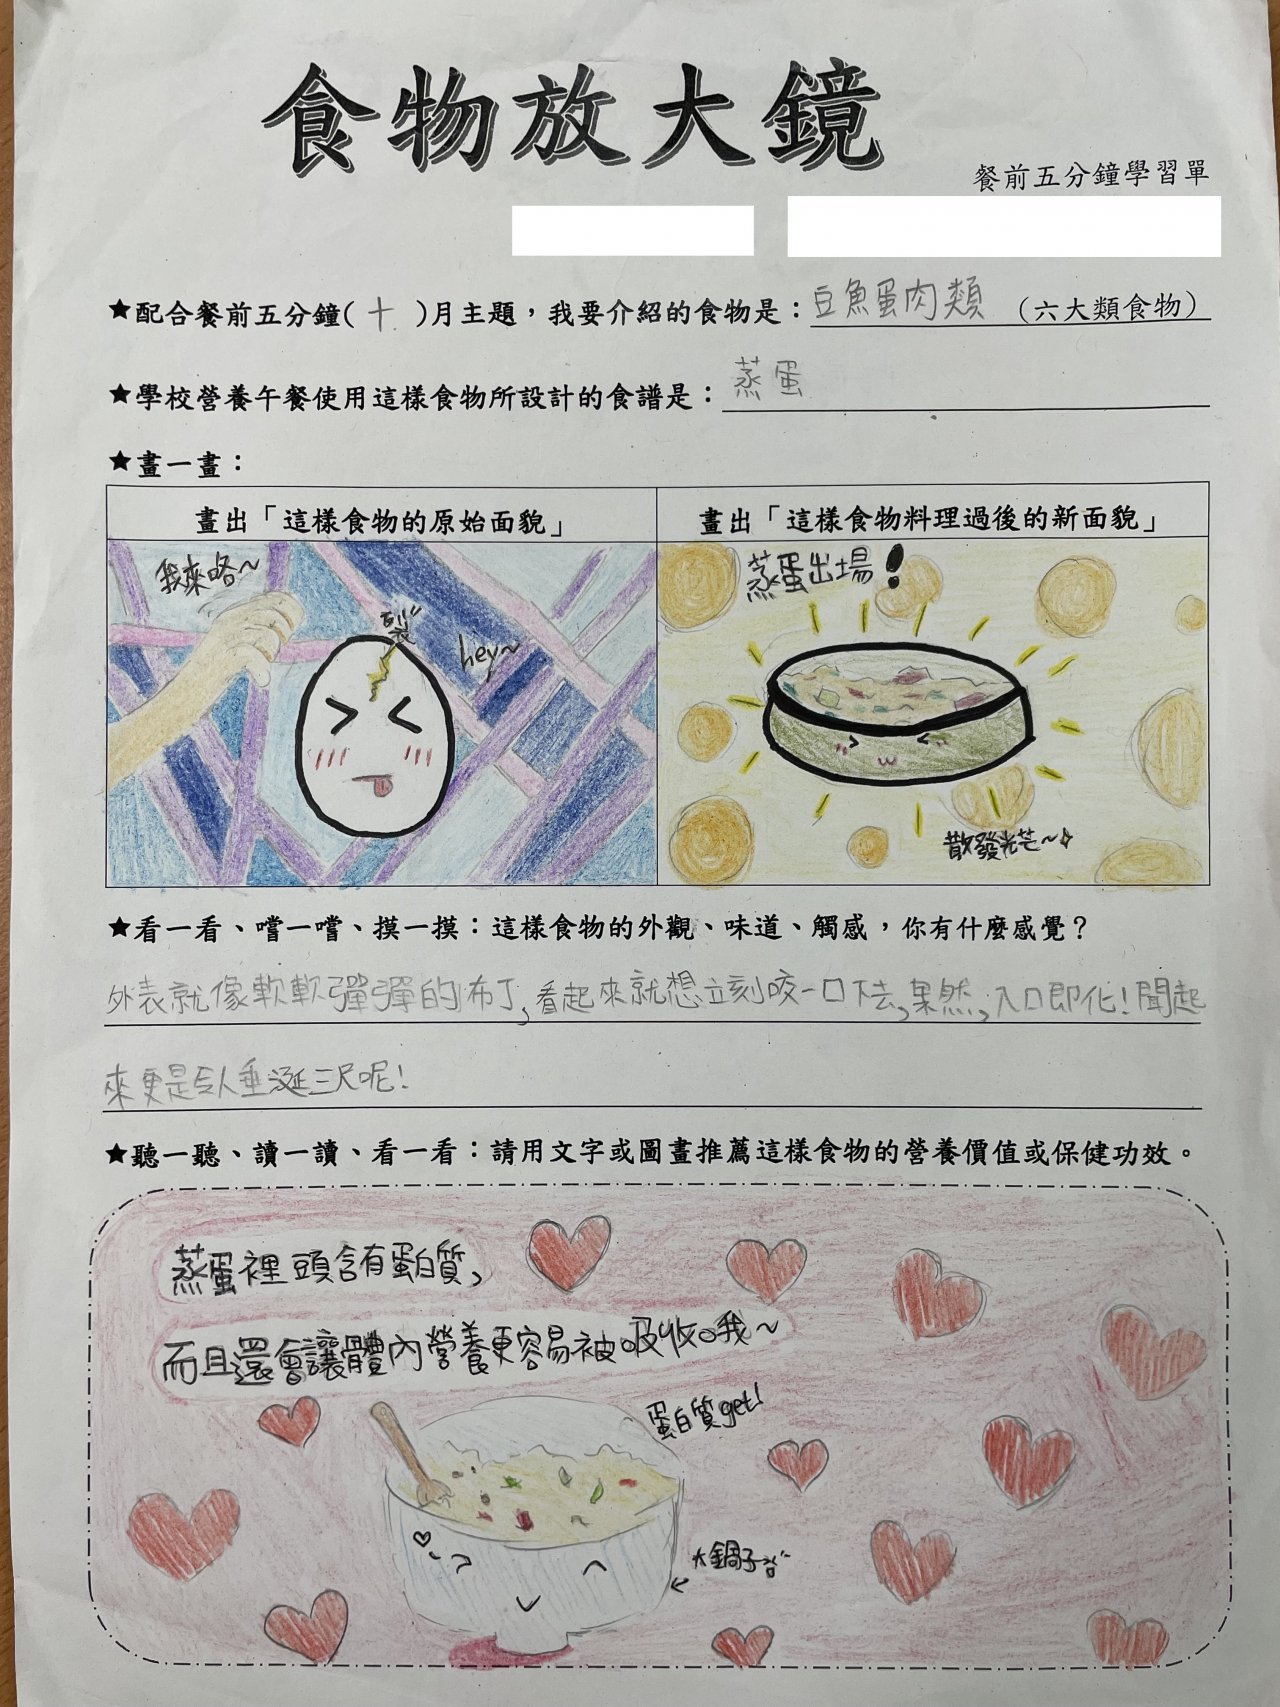 食物放大鏡
餐前五分鐘學習單
★配合餐前五分鐘( 十 )月主題，我要介紹的食物是：豆魚蛋肉類（六大類食物）
★學校營養午餐使用這樣食物所設計的食譜是：蒸蛋
★畫一畫：
畫出「這樣食物的原始面貌」
畫出「這樣食物料理過後的新面貌」
我來咯~
裂
hey~
蒸蛋出場！
散發光芒~
★看一看、嚐一嚐、摸一摸：這樣食物的外觀、味道、觸感，你有什麼感覺？
外表就像軟軟彈彈的布丁，看起來就想立刻咬一口下去，果然，入口即化！聞起
來更是令人垂涎三尺呢！
★聽一聽、讀一讀、看一看：請用文字或圖畫推薦這樣食物的營養價值或保健功效。
蒸蛋裡頭含有蛋白質，
而且還會讓體內營養更容易被吸收哦~
蛋白質get!
大鍋子